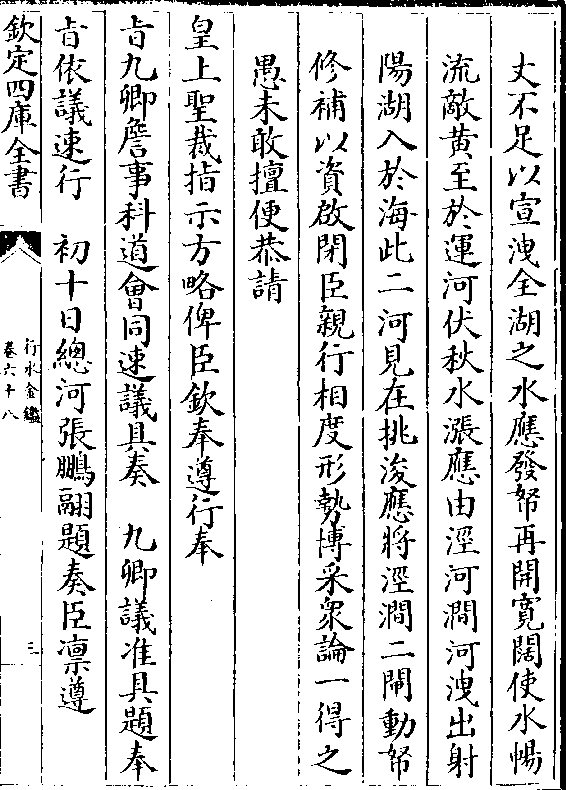 丈不足以宣洩全湖之水應發帑再開寛闊使水暢
流敵黄至於運河伏秋水漲應由涇河澗河洩出射
陽湖入於海此二河見在挑浚應將涇澗二閘動帑
修補以資啟閉臣親行相度形勢博采衆論一得之
愚未敢擅便恭請
皇上聖裁指示方略俾臣欽奉遵行奉
㫖九卿詹事科道會同速議具奏　九卿議准具題奉
㫖依議速行　初十日總河張鵬翮題奏臣凛遵
欽定四庫全書
行水金鑑
卷六十八
三